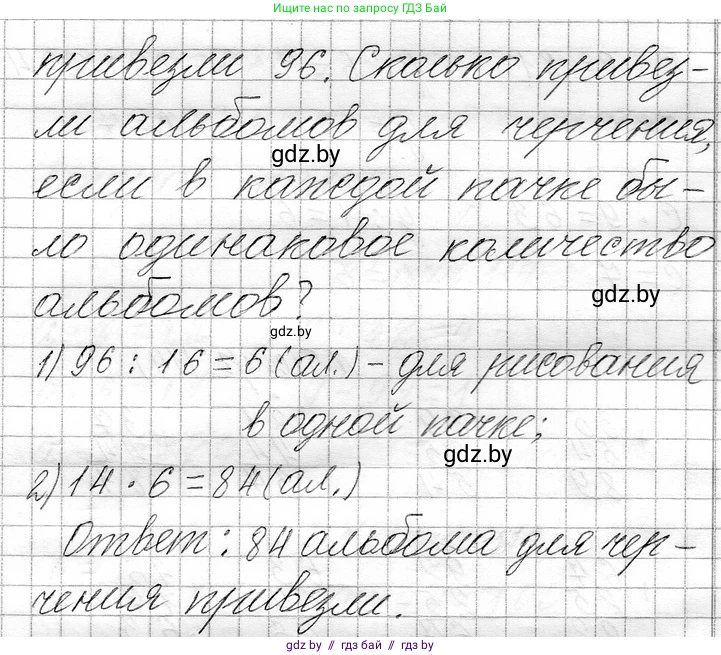 Ищите нас по запросу ГДЗ Бай
привезли 96. Сколько привез-
ли альбомов для черчения,
gdz.by
если в каждой пачке бы-
ло одинаковое количество
альбомов?
gdz.by
gdz.by
1) 96 : 16 = 6 (ал.) - для рисования
в одной пачке;
gdz.by
2) 14 · 6 = 84 (ал.)
Ответ: 84 альбома для чер-
чения привезли.
gdz.by // гдз бай // gdz by